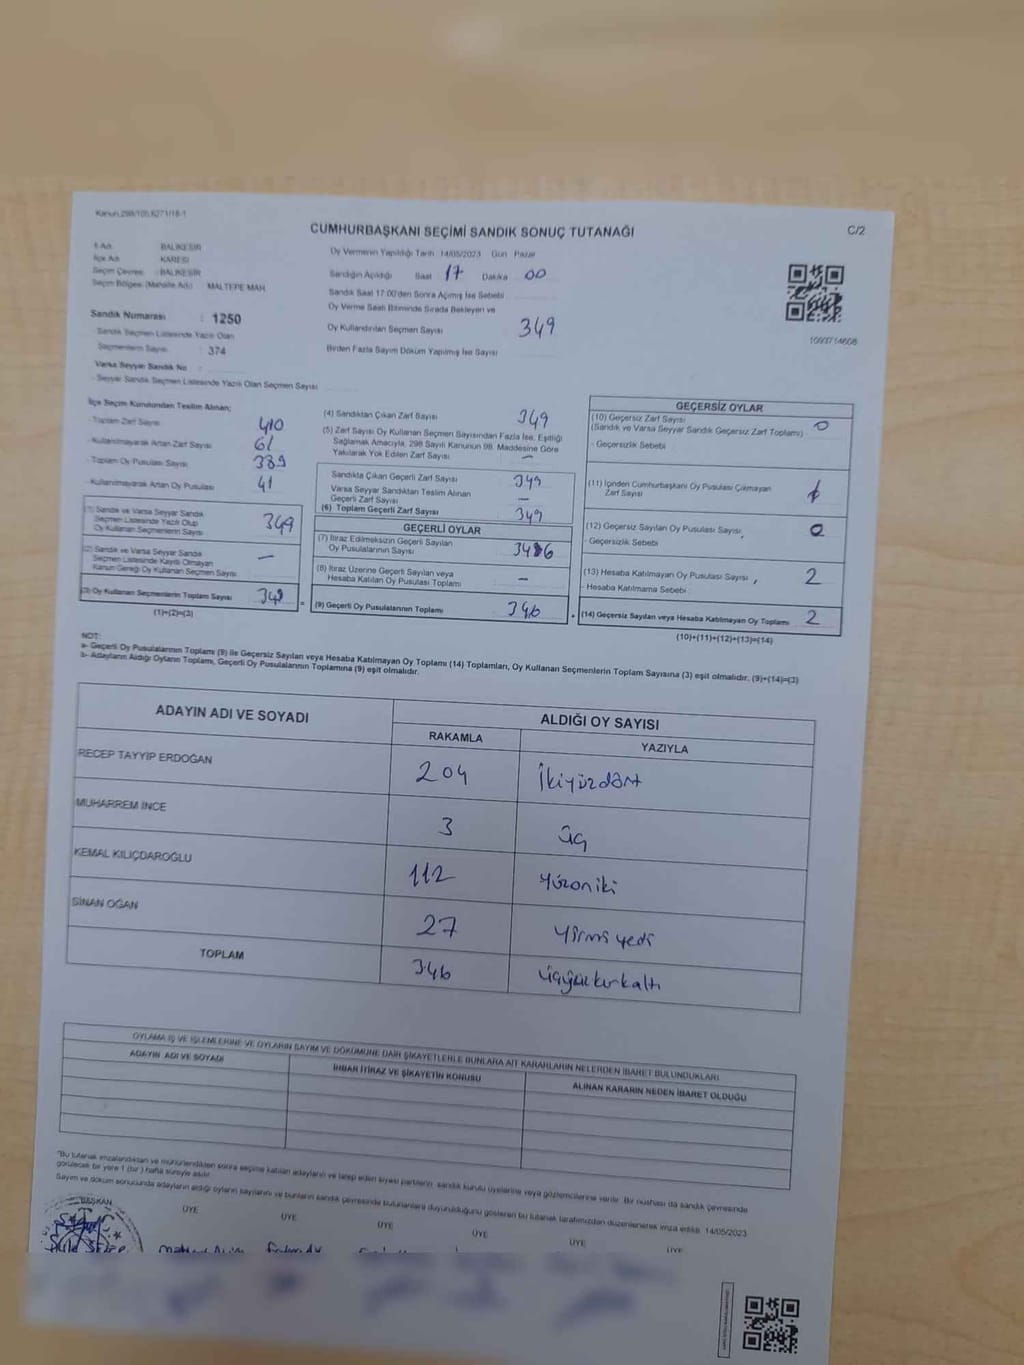 Kanun 298/105,6271/18-1
CUMHURBAŞKANI SEÇİMİ SANDIK SONUÇ TUTANAĞI
C/2
İl Adı BALIKESİR
İlçe Adı KARESİ
Seçim Çevresi : BALIKESİR
Seçim Bölgesi (Mahalle Adı) MALTEPE MAH
Sandık Numarası : 1250
- Sandık Seçmen Listesinde Yazılı Olan
Seçmenlerin Sayısı : 374
Varsa Seyyar Sandık No :
- Seyyar Sandık Seçmen Listesinde Yazılı Olan Seçmen Sayısı
Oy Vermenin Yapıldığı Tarih 14/05/2023 Gün Pazar
Sandığın Açıldığı Saat 17 Dakika 00
Sandık Saat 17:00'den Sonra Açılmış İse Sebebi
Oy Verme Saati Bitiminde Sırada Bekleyen ve
Oy Kullandırılan Seçmen Sayısı 349
Birden Fazla Sayım Döküm Yapılmış İse Sayısı
1093714608
İlçe Seçim Kurulundan Teslim Alınan;
- Toplam Zarf Sayısı 410
- Kullanılmayarak Artan Zarf Sayısı 61
- Toplam Oy Pusulası Sayısı 389
- Kullanılmayarak Artan Oy Pusulası 41
(1) Sandık ve Varsa Seyyar Sandık
Seçmen Listesinde Yazılı Olup
Oy Kullanan Seçmenlerin Sayısı 349
(2) Sandık ve Varsa Seyyar Sandık
Seçmen Listesinde Kayıtlı Olmayan
Kanun Gereği Oy Kullanan Seçmen Sayısı —
(3) Oy Kullanan Seçmenlerin Toplam Sayısı
(1)+(2)=(3)
(4) Sandıktan Çıkan Zarf Sayısı 349
(5) Zarf Sayısı Oy Kullanan Seçmen Sayısından Fazla İse, Eşitliği
Sağlamak Amacıyla, 298 Sayılı Kanunun 98. Maddesine Göre
Yakılarak Yok Edilen Zarf Sayısı —
Sandıkta Çıkan Geçerli Zarf Sayısı 349
Varsa Seyyar Sandıktan Teslim Alınan
Geçerli Zarf Sayısı —
(6) Toplam Geçerli Zarf Sayısı 349
GEÇERLİ OYLAR
(7) İtiraz Edilmeksizin Geçerli Sayılan
Oy Pusulalarının Sayısı
(8) İtiraz Üzerine Geçerli Sayılan veya
Hesaba Katılan Oy Pusulası Toplamı —
= (9) Geçerli Oy Pusulalarının Toplamı 346
GEÇERSİZ OYLAR
(10) Geçersiz Zarf Sayısı
(Sandık ve Varsa Seyyar Sandık Geçersiz Zarf Toplamı) 0
- Geçersizlik Sebebi
(11) İçinden Cumhurbaşkanı Oy Pusulası Çıkmayan
Zarf Sayısı
(12) Geçersiz Sayılan Oy Pusulası Sayısı 0
- Geçersizlik Sebebi
(13) Hesaba Katılmayan Oy Pusulası Sayısı 2
- Hesaba Katılmama Sebebi
+ (14) Geçersiz Sayılan veya Hesaba Katılmayan Oy Toplamı 2
(10)+(11)+(12)+(13)=(14)
NOT:
a- Geçerli Oy Pusulalarının Toplamı (9) ile Geçersiz Sayılan veya Hesaba Katılmayan Oy Toplamı (14) Toplamları, Oy Kullanan Seçmenlerin Toplam Sayısına (3) eşit olmalıdır. (9)+(14)=(3)
b- Adayların Aldığı Oyların Toplamı, Geçerli Oy Pusulalarının Toplamına (9) eşit olmalıdır.
ADAYIN ADI VE SOYADI ALDIĞI OY SAYISI
RAKAMLA YAZIYLA
RECEP TAYYİP ERDOĞAN 204 İkiyüzdört
MUHARREM İNCE 3 üç
KEMAL KILIÇDAROĞLU 112 yüzoniki
SİNAN OĞAN 27 yirmi yedi
TOPLAM 346 üçyüzkırkaltı
OYLAMA İŞ VE İŞLEMLERİNE VE OYLARIN SAYIM VE DÖKÜMÜNE DAİR ŞİKAYETLERLE BUNLARA AİT KARARLARIN NELERDEN İBARET BULUNDUKLARI
ADAYIN ADI VE SOYADI İHBAR İTİRAZ VE ŞİKAYETİN KONUSU ALINAN KARARIN NEDEN İBARET OLDUĞU
*Bu tutanak imzalandıktan ve mühürlendikten sonra seçime katılan adayların ve talep eden siyasi partilerin sandık kurulu üyelerine veya gözlemcilerine verilir. Bir nüshası da sandık çevresinde
görülecek bir yere 1 (bir) hafta süreyle asılır.
Sayım ve döküm sonucunda adayların aldığı oyların sayılarını ve bunların sandık çevresinde bulunanlara duyurulduğunu gösteren bu tutanak tarafımızdan düzenlenerek imza edildi. 14/05/2023
BAŞKAN ÜYE ÜYE ÜYE ÜYE ÜYE ÜYE